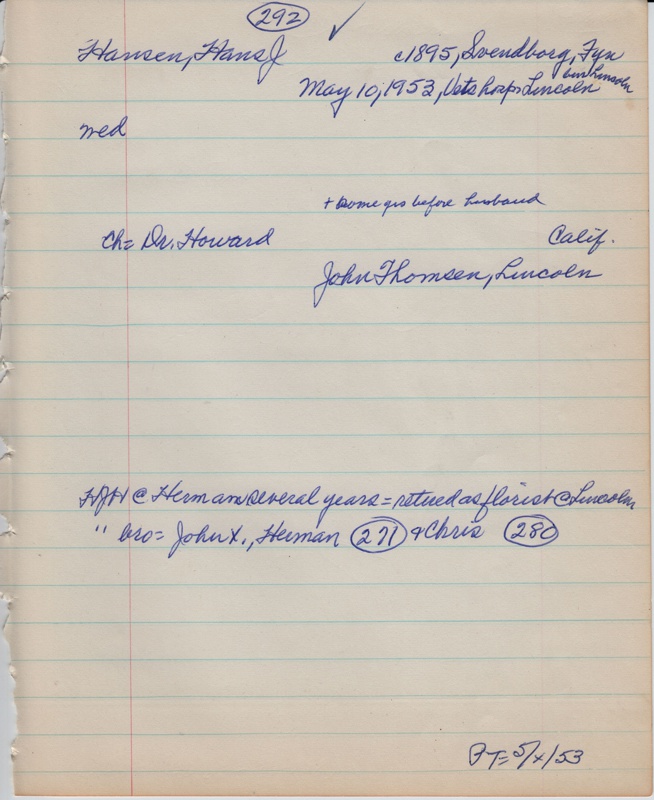 292 ✓
Hansen, Hans J c1895, Svendborg, Fyn
May 10, 1953, Vets hosp. Lincoln
bur Lincoln
wed
+ some yrs before husband
ch= Dr. Howard Calif.
John Thomsen, Lincoln
HJH @ Herman several years = retired as florist @ Lincoln
" bro= John X., Herman 271 & Chris 280
PT= 5/x/53